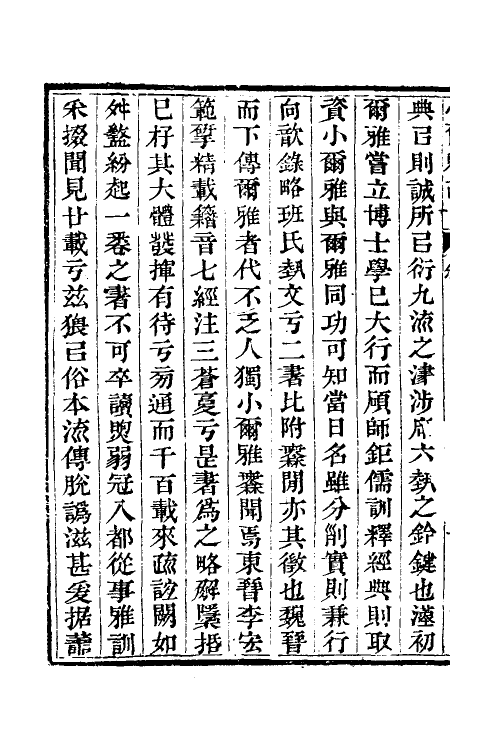 典㠯則誠所㠯衍九流之津涉爲六埶之鈐鍵也漢初
爾雅嘗立博士學已大行而碩師鉅儒訓釋經典則取
資小爾雅與爾雅同功可知當日名雖分削實則兼行
向歆錄略班氏埶文亏二書比附叢閒亦其徵也魏晉
而下傳爾雅者代不乏人獨小爾雅叢聞焉東晉李宏
範擘精載籍音七經注三蒼夐亏是書爲之略解檃栝
已杍其大體發揮有待亏㫄通而千百載來疏証闕如
舛盭紛起一卷之書不可卒讀煚弱冠入都從事雅訓
采掇聞見廿載亏兹猥㠯俗本流傳脫譌滋甚爰据舊